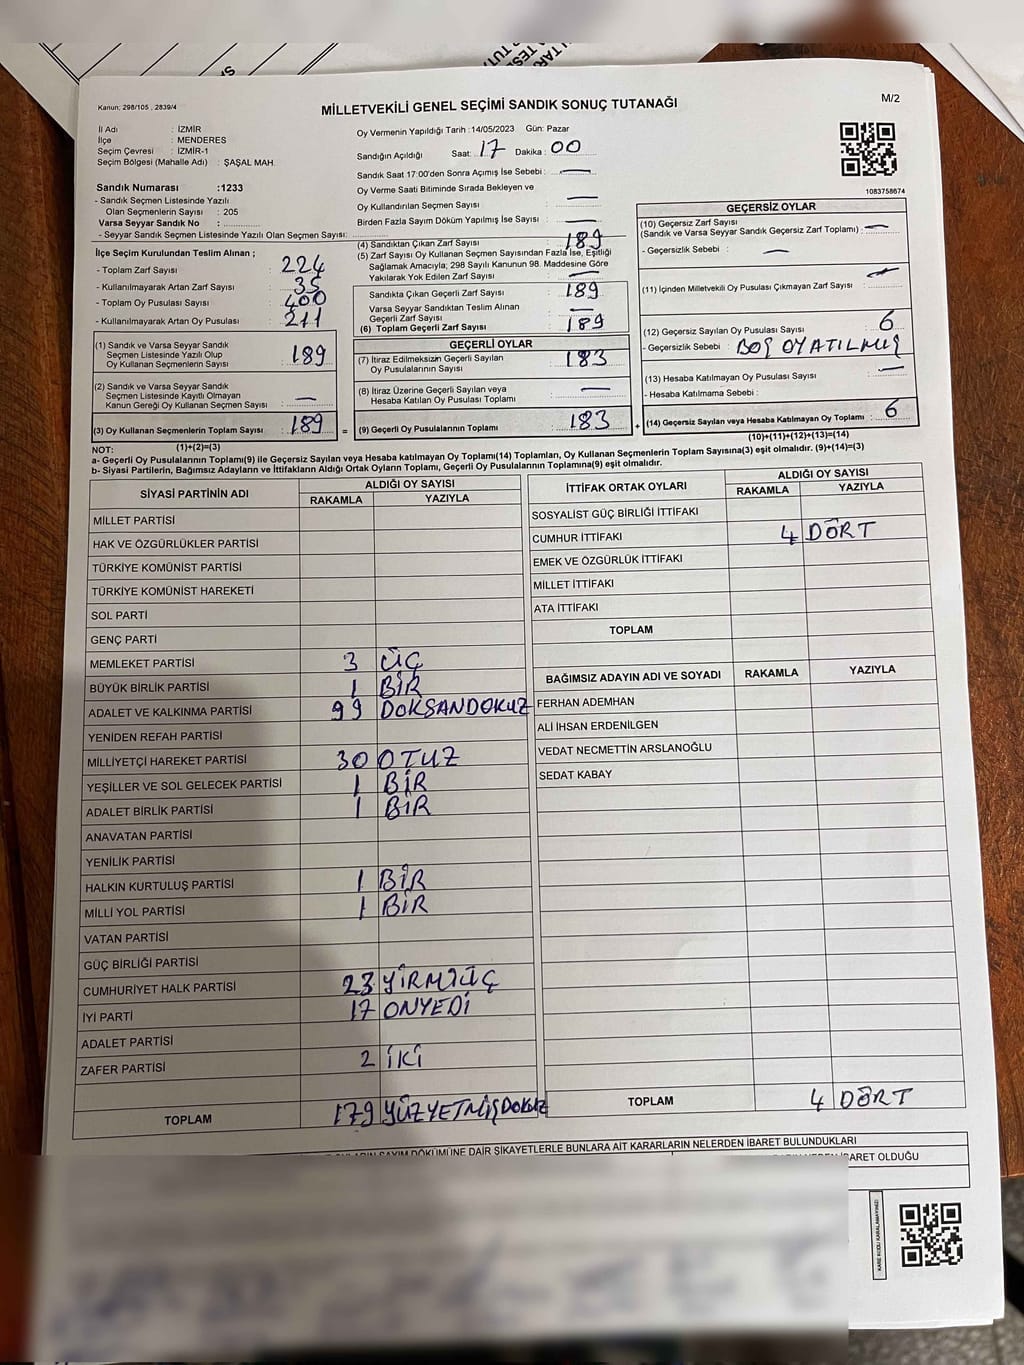 TUTA
TESL
TUT
Kanun: 298/105 , 2839/4
MİLLETVEKİLİ GENEL SEÇİMİ SANDIK SONUÇ TUTANAĞI
M/2
İl Adı : İZMİR
İlçe : MENDERES
Seçim Çevresi : İZMİR-1
Seçim Bölgesi (Mahalle Adı) : ŞAŞAL MAH.
Oy Vermenin Yapıldığı Tarih :14/05/2023 Gün: Pazar
Sandığın Açıldığı Saat: 17 Dakika : 00
Sandık Saat 17:00'den Sonra Açımış İse Sebebi : —
Oy Verme Saati Bitiminde Sırada Bekleyen ve
Oy Kullandırılan Seçmen Sayısı : —
Birden Fazla Sayım Döküm Yapılmış İse Sayısı : —
1083758674
Sandık Numarası :1233
- Sandık Seçmen Listesinde Yazılı
Olan Seçmenlerin Sayısı : 205
Varsa Seyyar Sandık No :
- Seyyar Sandık Seçmen Listesinde Yazılı Olan Seçmen Sayısı:
İlçe Seçim Kurulundan Teslim Alınan ;
- Toplam Zarf Sayısı : 224
- Kullanılmayarak Artan Zarf Sayısı : 35
- Toplam Oy Pusulası Sayısı : 400
- Kullanılmayarak Artan Oy Pusulası : 211
(1) Sandık ve Varsa Seyyar Sandık
Seçmen Listesinde Yazılı Olup
Oy Kullanan Seçmenlerin Sayısı : 189
(2) Sandık ve Varsa Seyyar Sandık
Seçmen Listesinde Kayıtlı Olmayan
Kanun Gereği Oy Kullanan Seçmen Sayısı : —
(3) Oy Kullanan Seçmenlerin Toplam Sayısı : 189
(4) Sandıktan Çıkan Zarf Sayısı : 189
(5) Zarf Sayısı Oy Kullanan Seçmen Sayısından Fazla İse, Eşitliği
Sağlamak Amacıyla; 298 Sayılı Kanunun 98. Maddesine Göre
Yakılarak Yok Edilen Zarf Sayısı : —
Sandıkta Çıkan Geçerli Zarf Sayısı : 189
Varsa Seyyar Sandıktan Teslim Alınan
Geçerli Zarf Sayısı : —
(6) Toplam Geçerli Zarf Sayısı : 189
GEÇERLİ OYLAR
(7) İtiraz Edilmeksizin Geçerli Sayılan
Oy Pusulalarının Sayısı : 183
(8) İtiraz Üzerine Geçerli Sayılan veya
Hesaba Katılan Oy Pusulası Toplamı : —
= (9) Geçerli Oy Pusulalarının Toplamı : 183
GEÇERSİZ OYLAR
(10) Geçersiz Zarf Sayısı
(Sandık ve Varsa Seyyar Sandık Geçersiz Zarf Toplamı) : —
- Geçersizlik Sebebi : —
(11) İçinden Milletvekili Oy Pusulası Çıkmayan Zarf Sayısı : —
(12) Geçersiz Sayılan Oy Pusulası Sayısı : 6
- Geçersizlik Sebebi : BOŞ OY ATILMIŞ
(13) Hesaba Katılmayan Oy Pusulası Sayısı : —
- Hesaba Katılmama Sebebi :
+ (14) Geçersiz Sayılan veya Hesaba Katılmayan Oy Toplamı : 6
NOT: (1)+(2)=(3)
(10)+(11)+(12)+(13)=(14)
a- Geçerli Oy Pusulalarının Toplamı(9) ile Geçersiz Sayılan veya Hesaba katılmayan Oy Toplamı(14) Toplamları, Oy Kullanan Seçmenlerin Toplam Sayısına(3) eşit olmalıdır. (9)+(14)=(3)
b- Siyasi Partilerin, Bağımsız Adayların ve İttifakların Aldığı Ortak Oyların Toplamı, Geçerli Oy Pusulalarının Toplamına(9) eşit olmalıdır.
SİYASİ PARTİNİN ADI
ALDIĞI OY SAYISI
RAKAMLA YAZIYLA
MİLLET PARTİSİ
HAK VE ÖZGÜRLÜKLER PARTİSİ
TÜRKİYE KOMÜNİST PARTİSİ
TÜRKİYE KOMÜNİST HAREKETİ
SOL PARTİ
GENÇ PARTİ
MEMLEKET PARTİSİ 3 ÜÇ
BÜYÜK BİRLİK PARTİSİ 1 BİR
ADALET VE KALKINMA PARTİSİ 99 DOKSANDOKUZ
YENİDEN REFAH PARTİSİ
MİLLİYETÇİ HAREKET PARTİSİ 30 OTUZ
YEŞİLLER VE SOL GELECEK PARTİSİ 1 BİR
ADALET BİRLİK PARTİSİ 1 BİR
ANAVATAN PARTİSİ
YENİLİK PARTİSİ
HALKIN KURTULUŞ PARTİSİ 1 BİR
MİLLİ YOL PARTİSİ 1 BİR
VATAN PARTİSİ
GÜÇ BİRLİĞİ PARTİSİ
CUMHURİYET HALK PARTİSİ 23 YİRMİÜÇ
İYİ PARTİ 17 ONYEDİ
ADALET PARTİSİ
ZAFER PARTİSİ 2 İKİ
TOPLAM 179 YÜZYETMİŞDOKUZ
İTTİFAK ORTAK OYLARI
ALDIĞI OY SAYISI
RAKAMLA YAZIYLA
SOSYALİST GÜÇ BİRLİĞİ İTTİFAKI
CUMHUR İTTİFAKI 4 DÖRT
EMEK VE ÖZGÜRLÜK İTTİFAKI
MİLLET İTTİFAKI
ATA İTTİFAKI
TOPLAM
BAĞIMSIZ ADAYIN ADI VE SOYADI RAKAMLA YAZIYLA
FERHAN ADEMHAN
ALİ İHSAN ERDENİLGEN
VEDAT NECMETTİN ARSLANOĞLU
SEDAT KABAY
TOPLAM 4 DÖRT
SAYIM DÖKÜMÜNE DAİR ŞİKAYETLERLE BUNLARA AİT KARARLARIN NELERDEN İBARET BULUNDUKLARI
İBARET OLDUĞU
KARE KODU KARALAMAYINIZ!